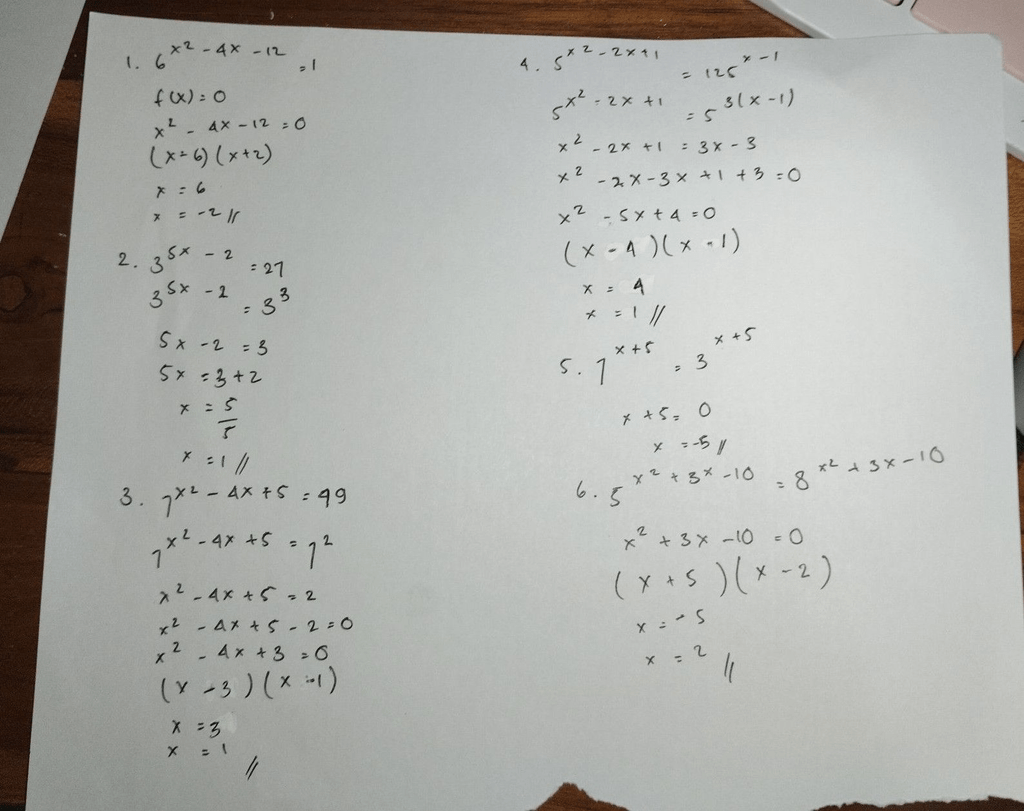 1. 6^(x² - 4x - 12) = 1
f(x) = 0
x² - 4x - 12 = 0
(x - 6) (x + 2)
x = 6
x = -2 //
2. 3^(5x - 2) = 27
3^(5x - 2) = 3³
5x - 2 = 3
5x = 3 + 2
x = 5/5
x = 1 //
3. 7^(x² - 4x + 5) = 49
7^(x² - 4x + 5) = 7²
x² - 4x + 5 = 2
x² - 4x + 5 - 2 = 0
x² - 4x + 3 = 0
(x - 3) (x - 1)
x = 3
x = 1 //
4. 5^(x² - 2x + 1) = 125^(x - 1)
5^(x² - 2x + 1) = 5^(3(x - 1))
x² - 2x + 1 = 3x - 3
x² - 2x - 3x + 1 + 3 = 0
x² - 5x + 4 = 0
(x - 4)(x - 1)
x = 4
x = 1 //
5. 7^(x + 5) = 3^(x + 5)
x + 5 = 0
x = -5 //
6. 5^(x² + 3x - 10) = 8^(x² + 3x - 10)
x² + 3x - 10 = 0
(x + 5)(x - 2)
x = -5
x = 2 //